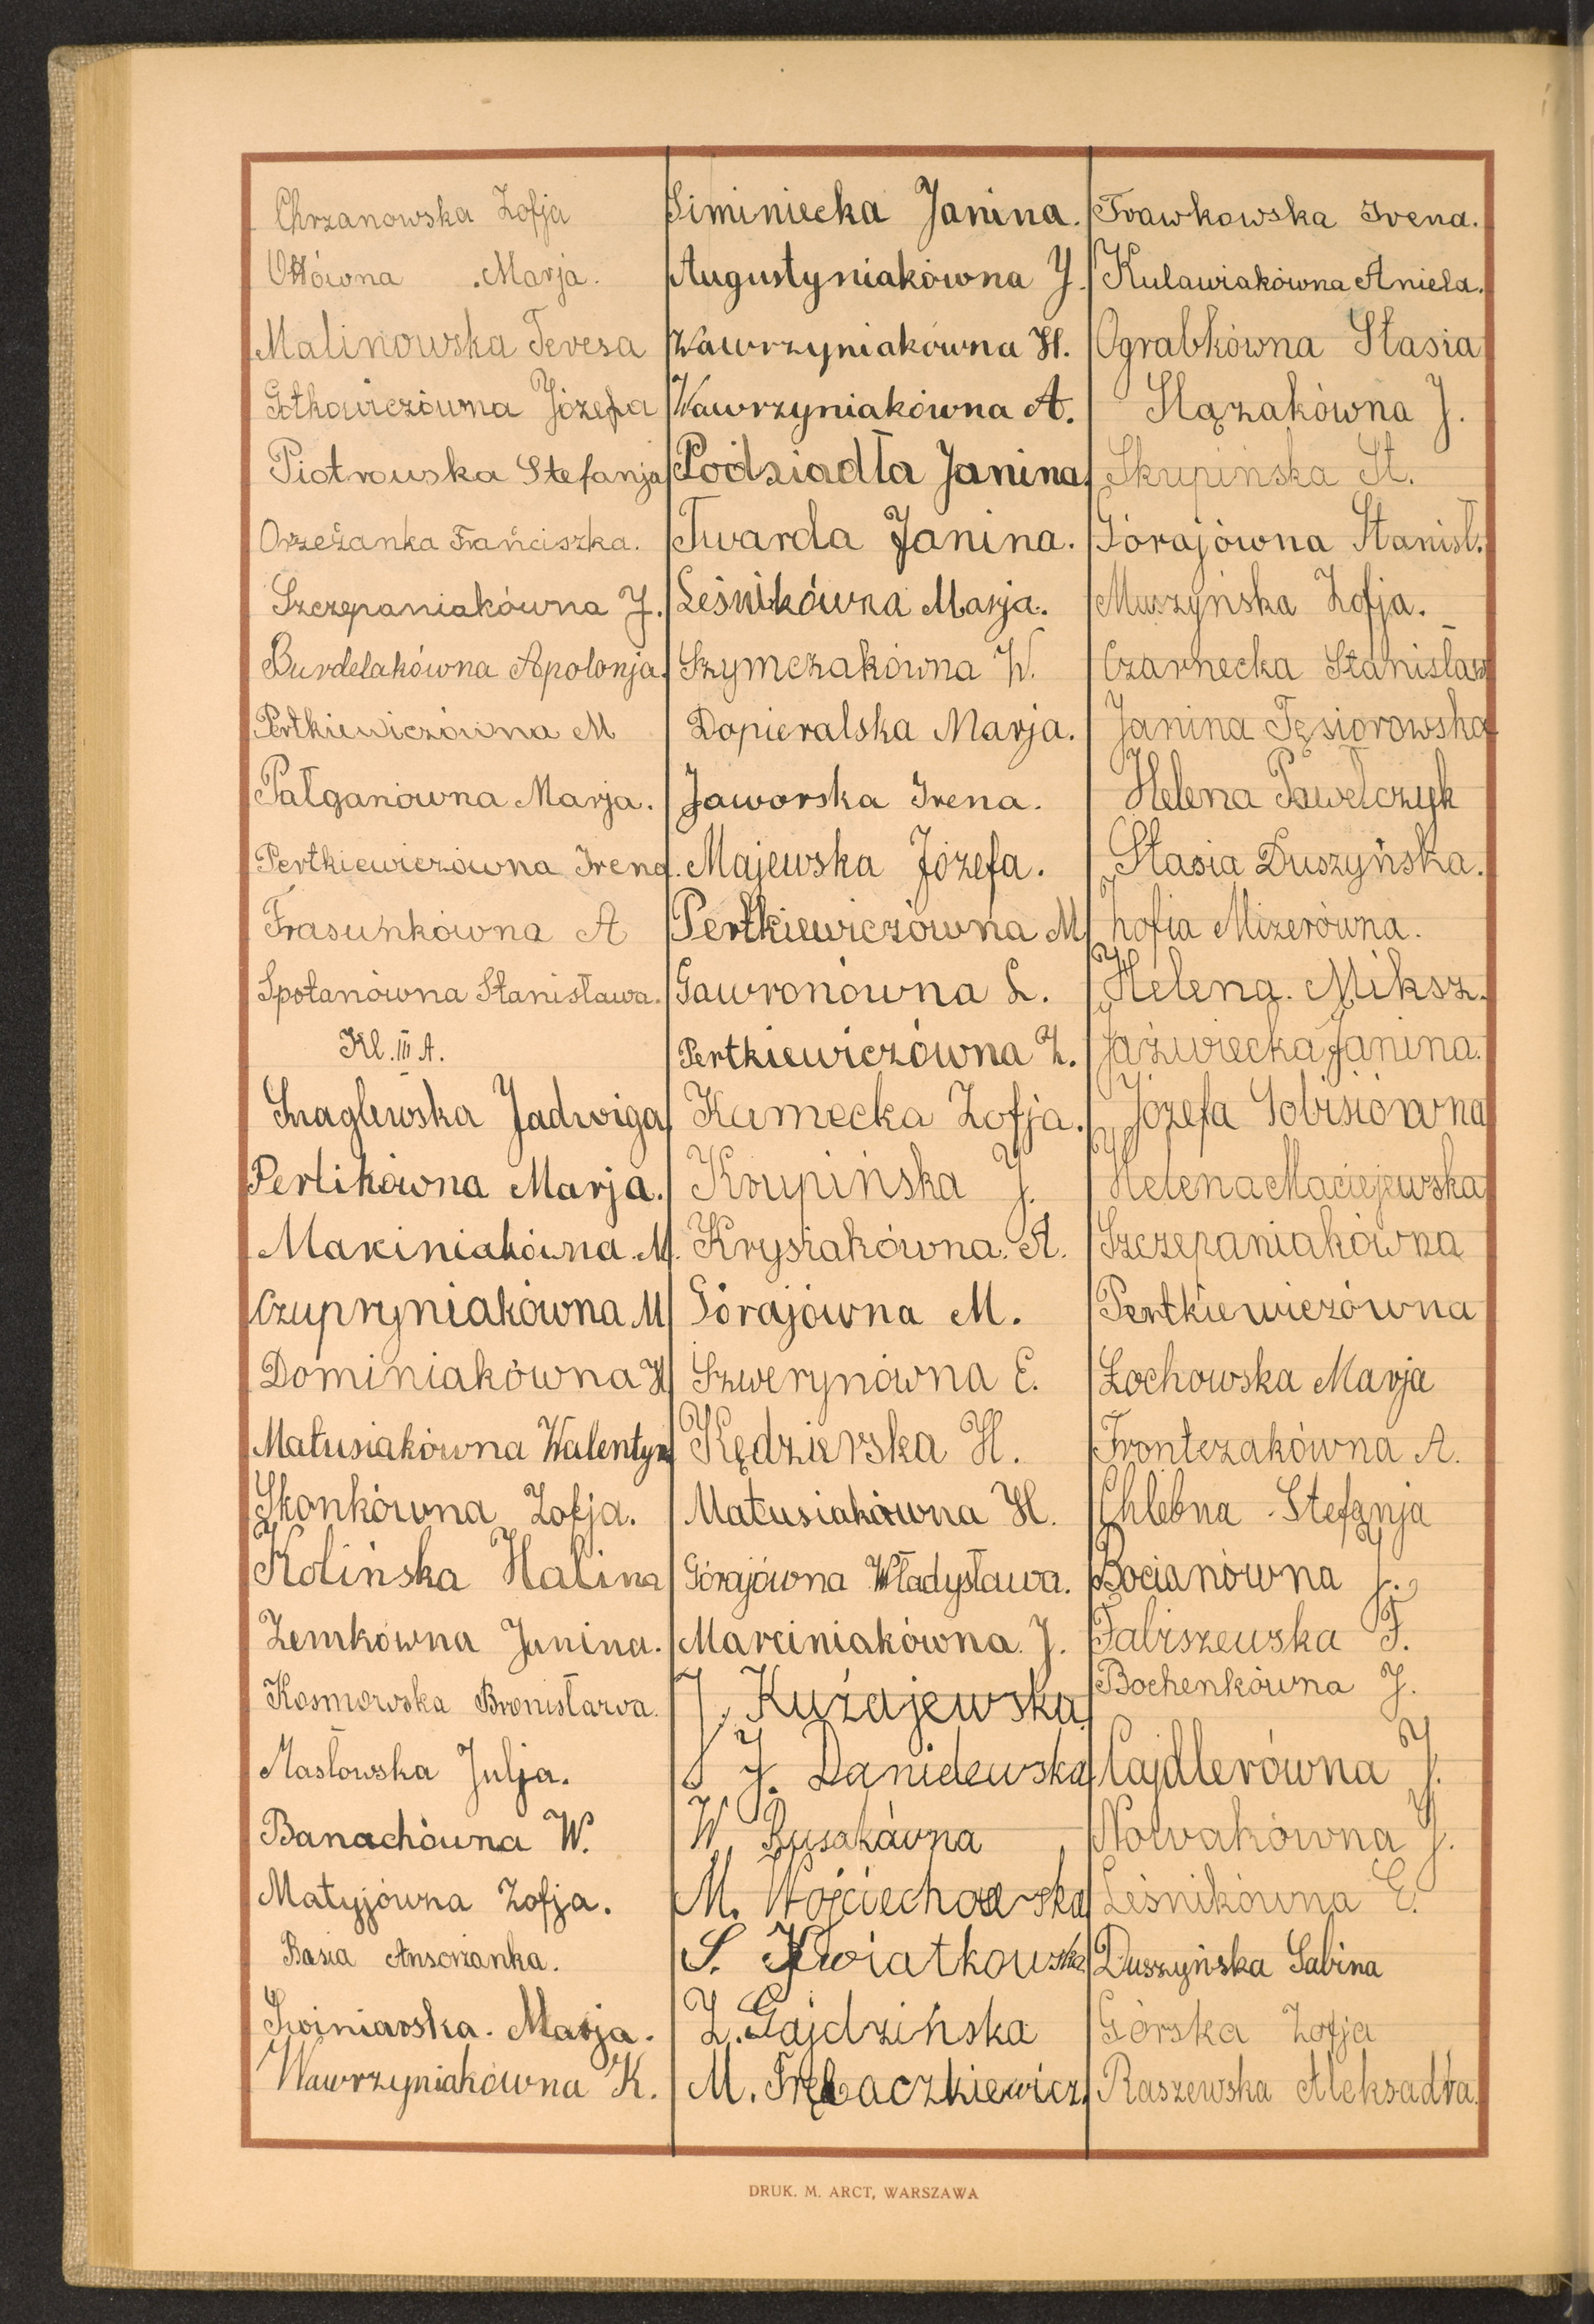 Chrzanowska Zofja
Ottówna Marja.
Malinowska Teresa
Gotkowiczówna Józefa
Piotrowska Stefanja
Orzeżanka Franciszka.
Szczepaniakówna J.
Burdelakówna Apolonja.
Pertkiewiczówna M
Pałganówna Marja.
Pertkiewiczówna Irena.
Frasunkówna A
Spotanówna Stanisława.
Kl. III A.
Szaglewska Jadwiga
Pertikówna Marja.
Marciniakówna M.
Czupryniakówna M
Dominiakówna H
Matusiakówna Walentyn
Skonkówna Zofja.
Kolińska Halina
Zemkówna Janina.
Kosmowska Bronisława.
Masłowska Julja.
Banachówna W.
Matyjówna Zofja.
Basia Ansorzanka.
Świniarska. Marja.
Wawrzyniakówna K.
Siminiecka Janina.
Augustyniakówna J.
Wawrzyniakówna H.
Wawrzyniakówna A.
Podsiadła Janina.
Twarda Janina.
Leśnikówna Marja.
Szymczakówna W.
Dopieralska Marja.
Jaworska Irena.
Majewska Józefa.
Pertkiewiczówna M
Gawronówna L.
Pertkiewiczówna Z.
Kamecka Zofja.
Krupińska J.
Krysiakówna. A.
Górajówna M.
Szwerynówna E.
Kędzierska H.
Matusiakówna H.
Górajówna Władysława.
Marciniakówna J.
J. Kuźajewska
J. Danielewska
W. Rusakówna
M. Wojciechowska
S. Kwiatkowska
Z. Gajdzińska
M. Trębaczkiewicz.
Trawkowska Irena.
Kulawiakówna Aniela.
Ograbkówna Stasia
Ślązakówna J.
Skupińska St.
Górajówna Stanisł.
Muszyńska Zofja.
Czarnecka Stanisław
Janina Gęsiorowska
Helena Pawelczyk
Stasia Duszyńska.
Zofia Mizerówna.
Helena. Miksz.
Jaźwiecka Janina.
Józefa Gobisiówna
Helena Maciejewska
Szczepaniakówna
Pertkiewiczówna
Żochowska Marja
Frontczakówna A.
Chlebna Stefanja
Bocianówna J.
Fabiszewska F.
Bochenkówna J.
Cajdlerówna J.
Nowakówna J.
Leśnikówna E.
Duszyńska Sabina
Górska Zofja
Raszewska Aleksadra.
DRUK. M. ARCT, WARSZAWA